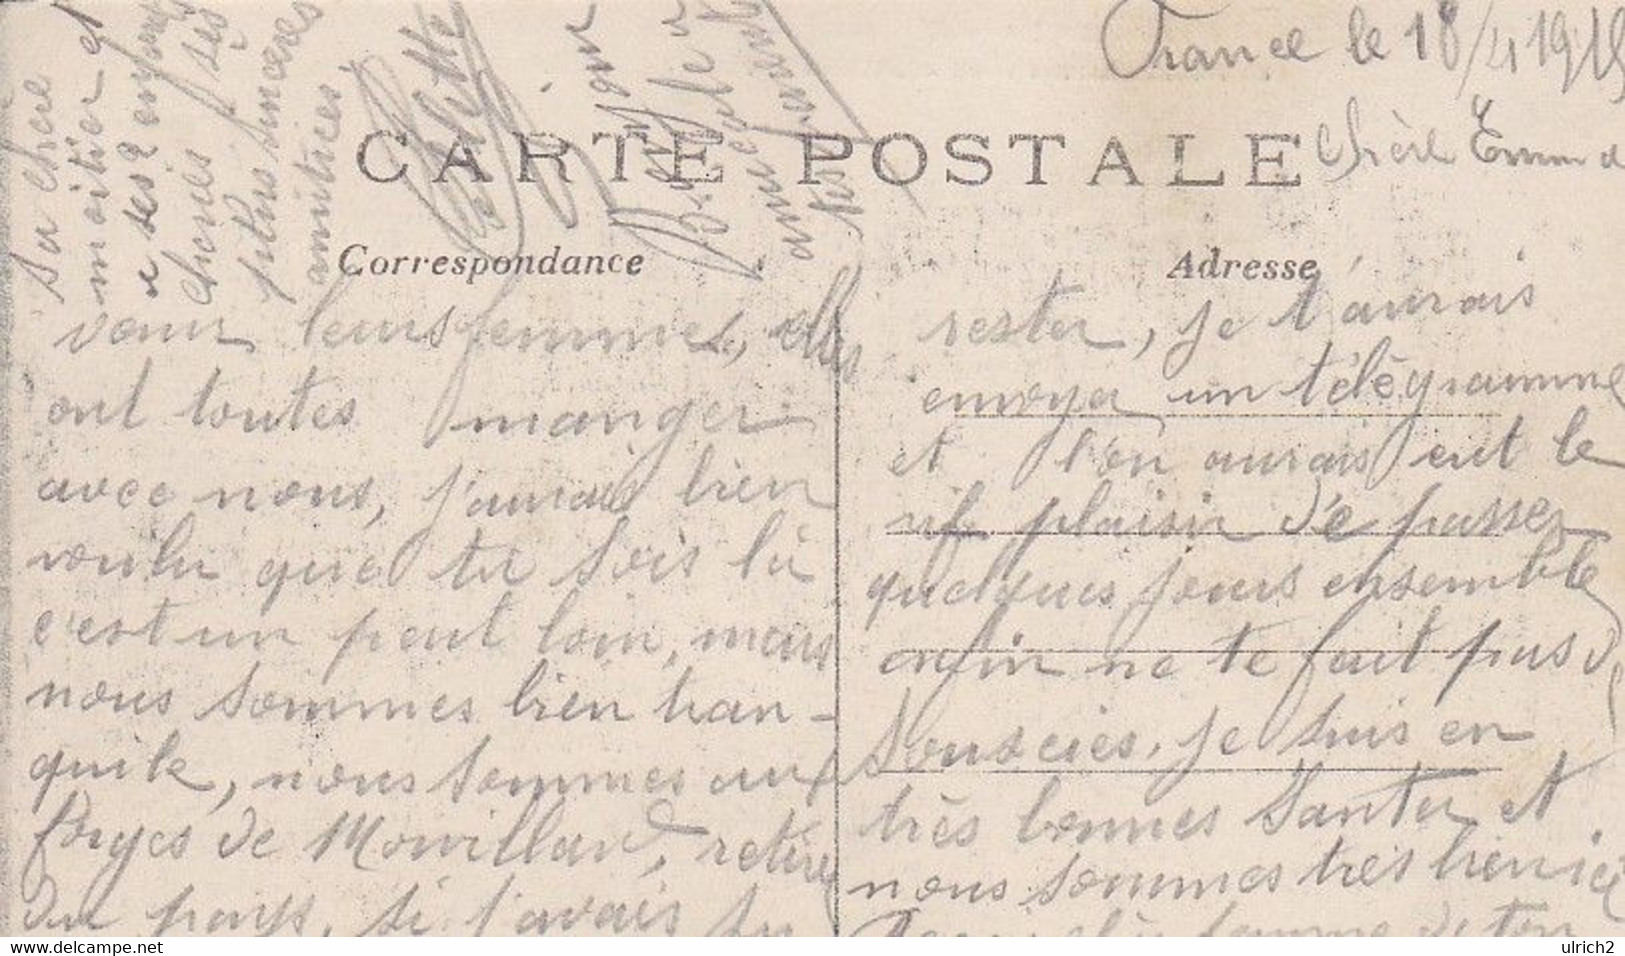 France le 18/4 1915
Chère Emma
CARTE POSTALE
Correspondance
Adresse
voir leurs femmes, elles
ont toutes manger
avec nous, j'aurais bien
voulu que tu sois là
c'est un peut loin, mais
nous sommes bien tran-
quile, nous sommes aux
forges de Mouillard, retiré
du pays, si j'avais su
rester, je t'aurais
envoyer un télégramme
et l'on aurais eut le
plaisir de passer
quelques jours ensemble
enfin ne te fait pas de
Souscies, je suis en
très bonnes Santer et
nous sommes très bien ici
femme de ton
Sa chère
moitier et
a ses 2 enfants
cheries ses
plus sinceres
amitiees
ulrich2